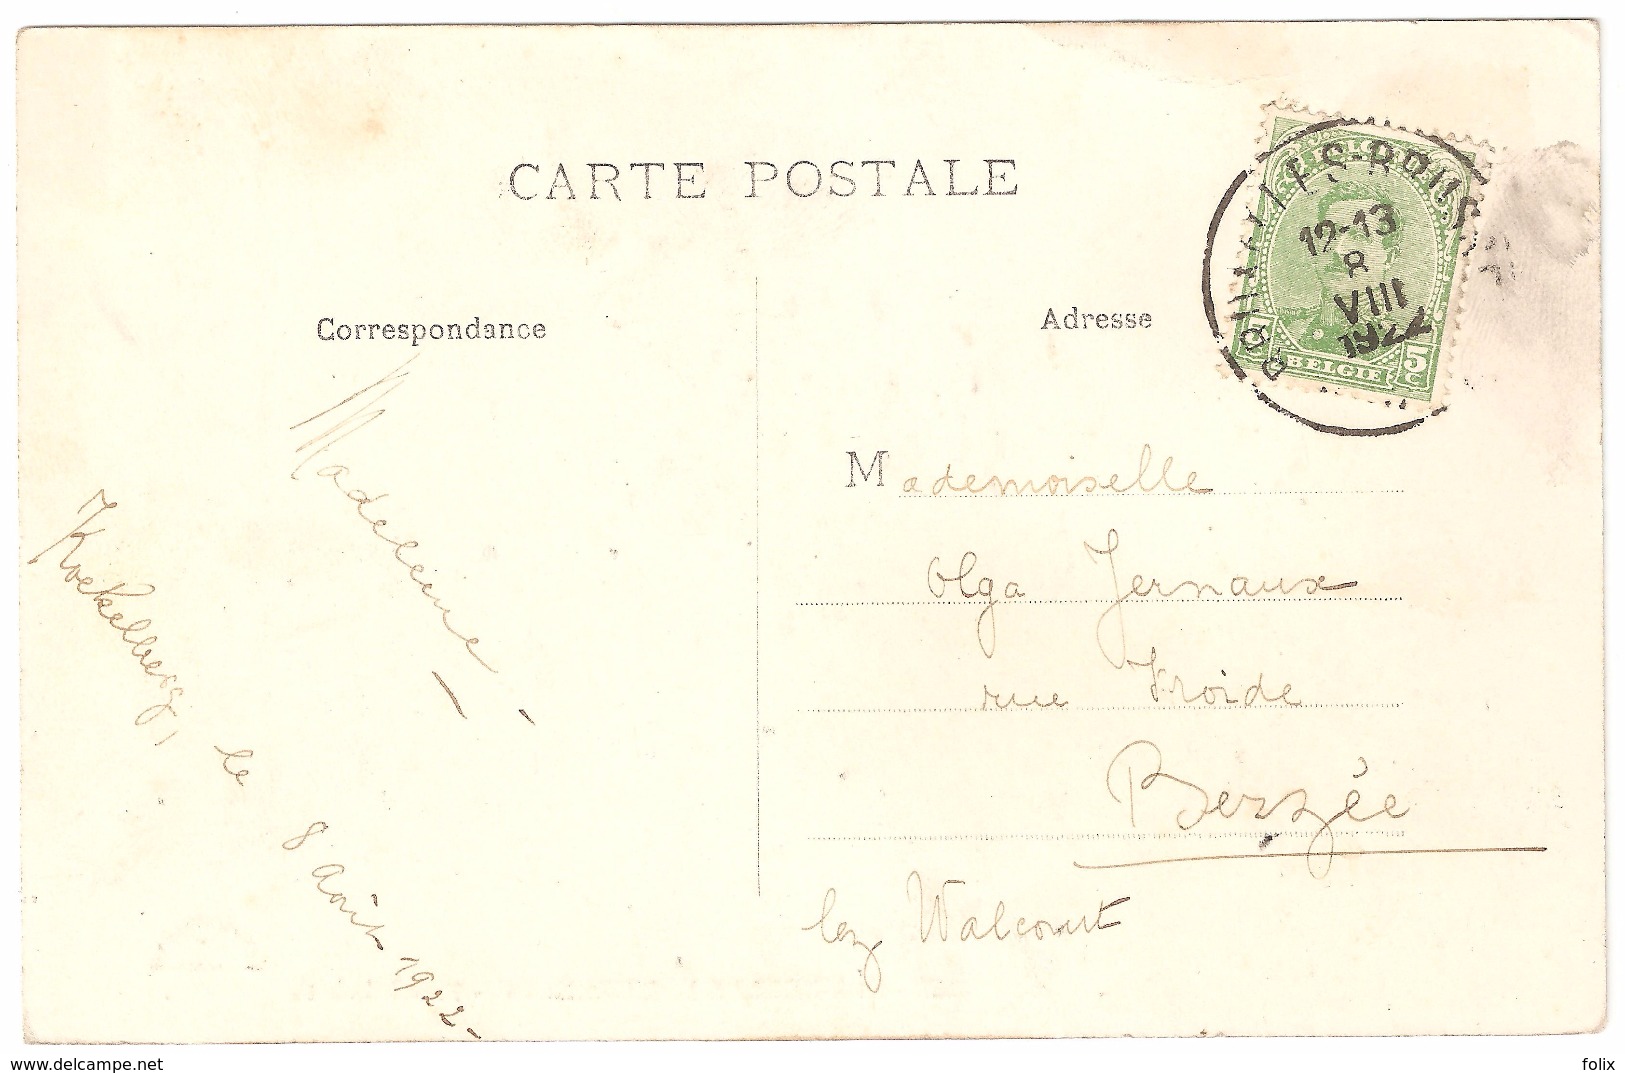 CARTE POSTALE
Correspondance
Adresse
12-13
8
VIII
1922
BELGIE
5
C
Madeleine
Koekelberg,
le
8 août 1922
Mademoiselle
Olga Jernaux
rue Froide
Berzée
lez Walcourt
www.delcampe.net
folix